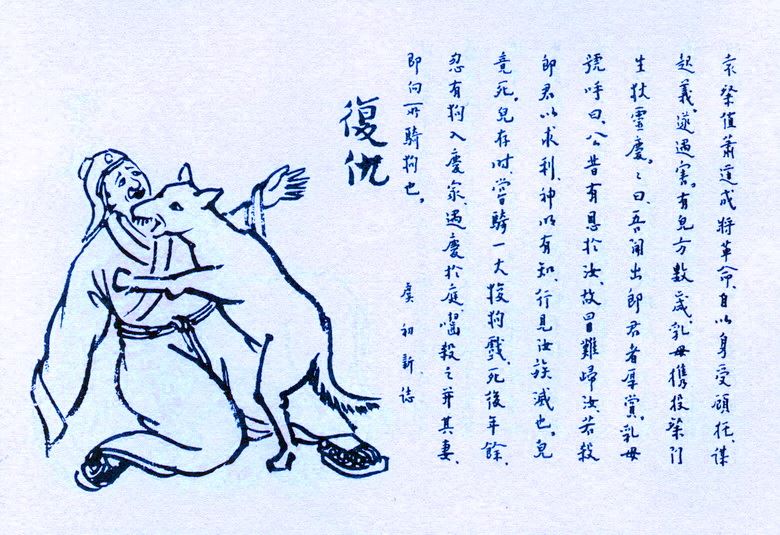 袁粲值蕭道成將革命、自以身受顧托、謀
起義、遂遇害。有兒方數歲、乳母攜投粲門
生狄靈慶。々曰、吾聞出郎君者厚賞。乳母
號呼曰、公昔有恩於汝、故冒難歸汝、若殺
郎君以求利、神明有知、行見汝族滅也。兒
竟死。兒存時、嘗騎一大狻狗戲、死後年餘、
忽有狗入慶家、遇慶於庭、嚙殺之、并其妻、
即向所騎狗也。
虞初新誌
復仇